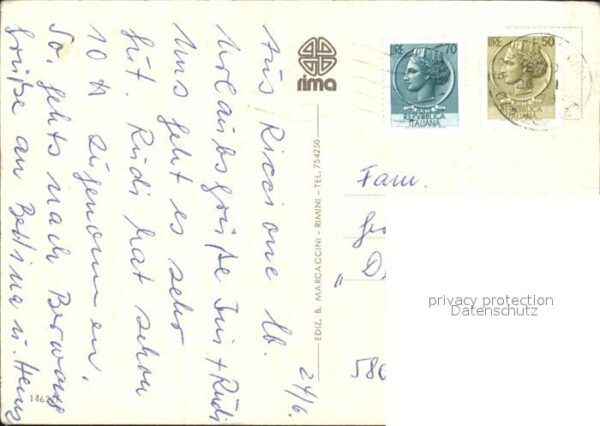 Aus Riccione lb.
Urlaubsgrüße Iris + Rudi
Uns geht es sehr
gut. Rudi hat schon
10 ℔ zugenommen.
So. gehts nach
Grüße an Bettina u. Heinz
24/6.
rima
EDIZ. B. MARCACCINI - RIMINI - TEL. 754250
LIRE 70
POSTE
REPUBBLICA
ITALIANA
LIRE 50
POSTE
REPUBBLICA
ITALIANA
Fam.
"D
580
privacy protection
Datenschutz
1462